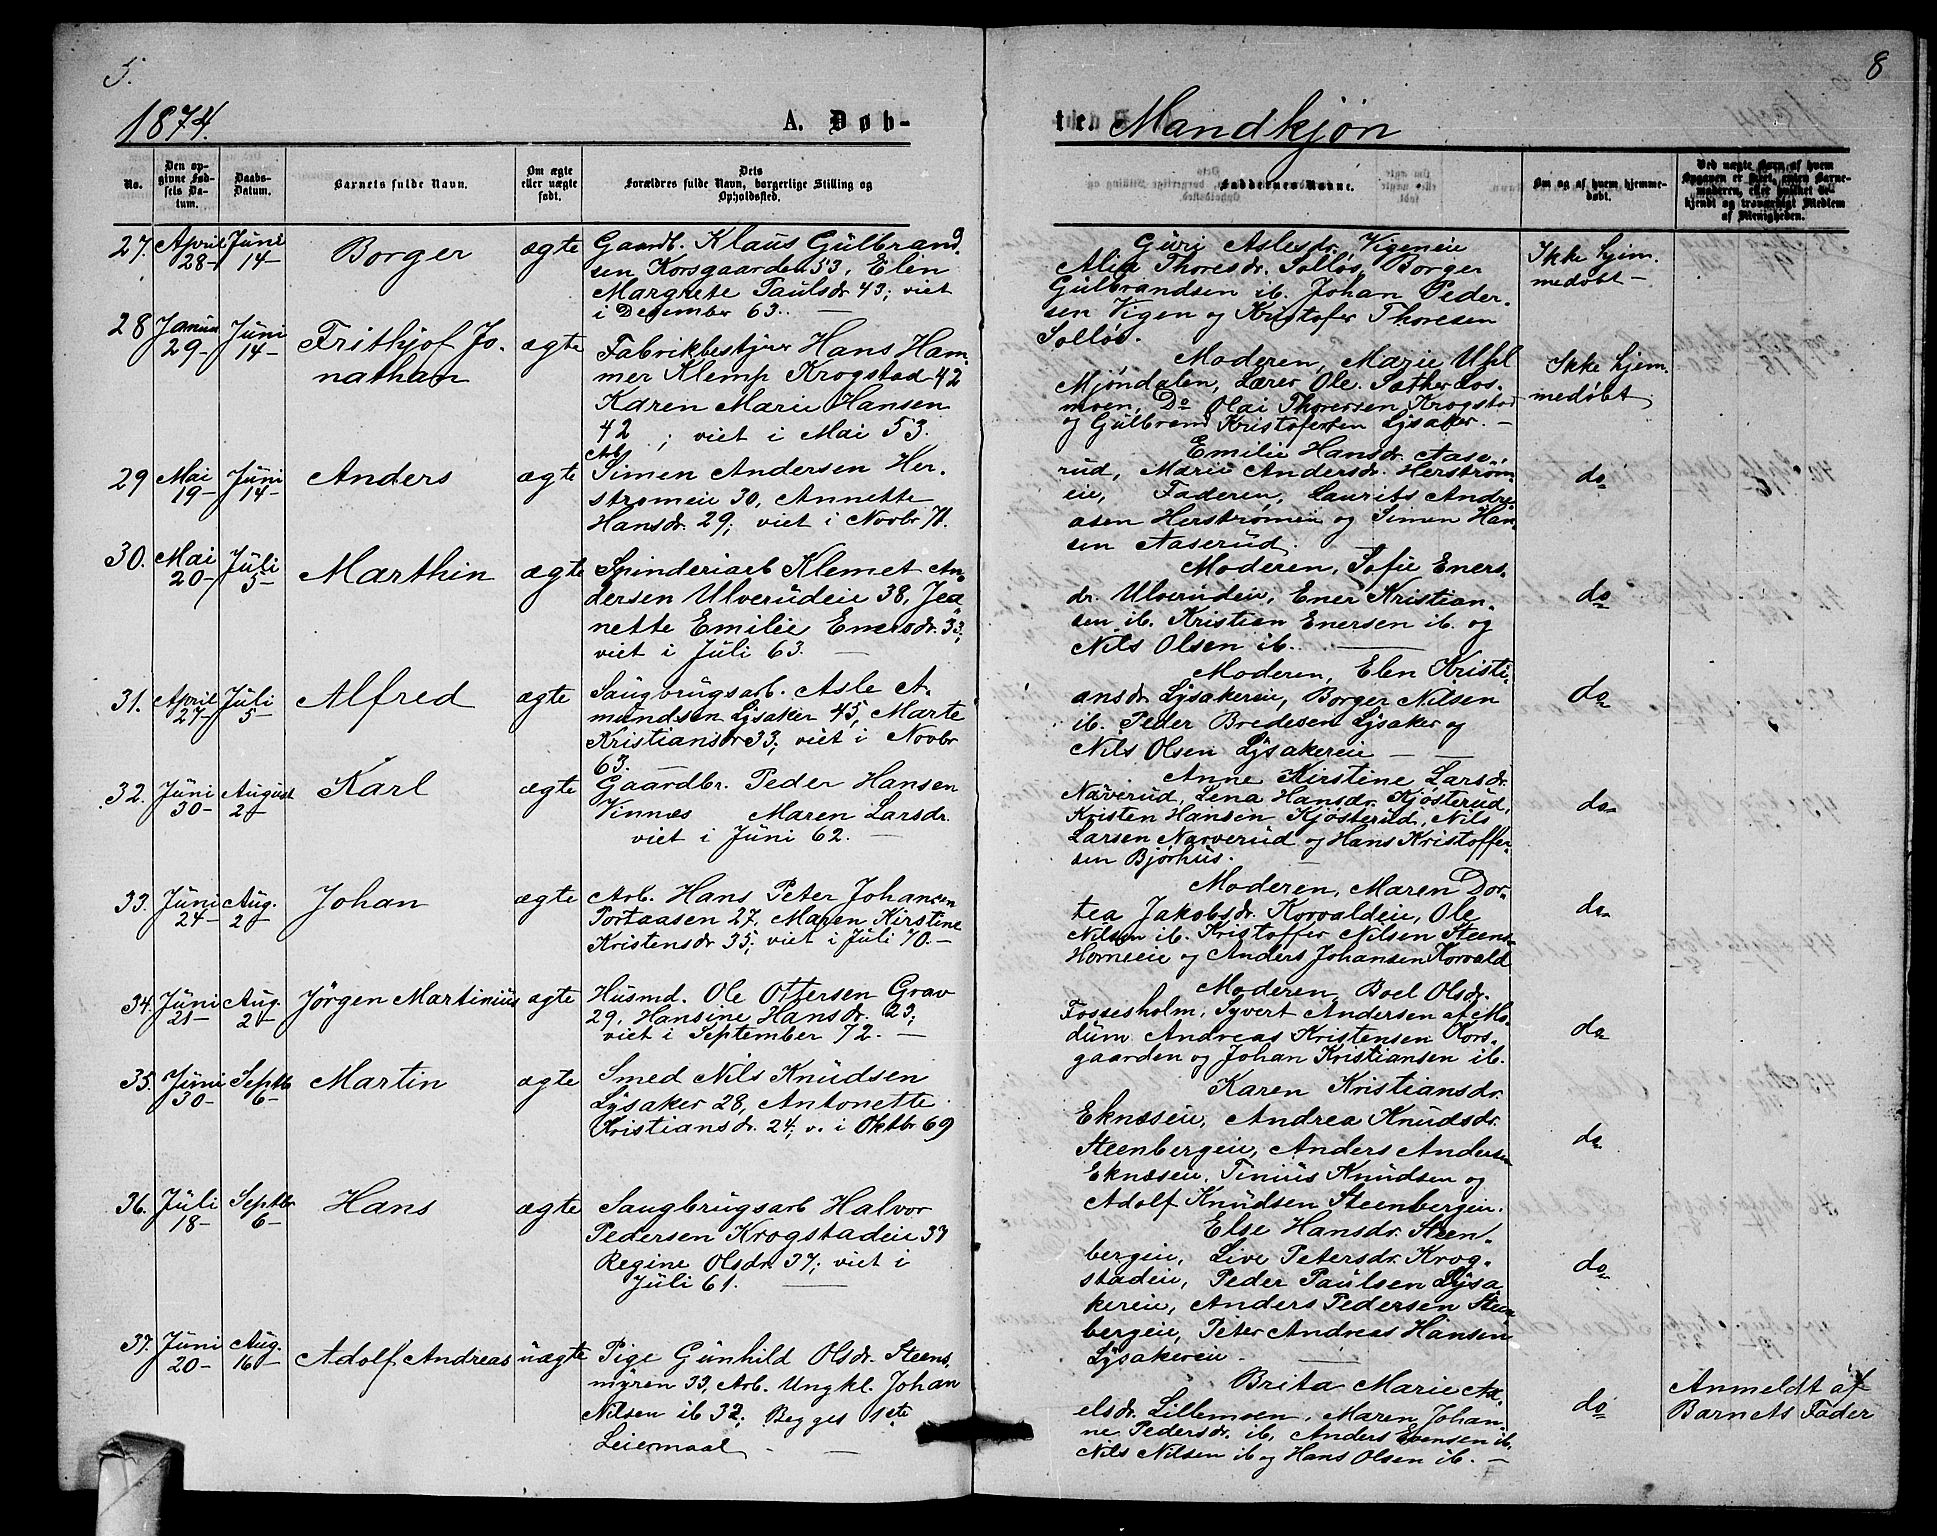 5.
8
1874.
A. Døb-
te. Mandkjøn
No.
Den op-
givne Fød-
sels Da-
tum.
Daabs-
Datum.
Barnets fulde Navn.
Om ægte
eller uægte
født.
Dets
Forældres fulde Navn, borgerlige Stilling og
Opholdssted.
Faddernes Navne.
Om og af hvem hjemme-
døbt.
Ved uægte Barn af hvem
Opgaven er skeet, enten Barne-
moderen, eller hvilket be-
kjendt og troværdigt Medlem
af Menigheden.
27. April 28- Juni 14- Borger ægte
Gaardb. Klaus Gulbrand-
sen Korsgaarden 53, Elen
Margrete Paulsdr. 43; viet
i December 63. —
Guri Aslesdr. Vigeneie
Alea Thoresdr. Solløs, Borger
Gulbrandsen ib. Johan Peder-
sen Vigen og Kristofer Thoresen
Solløs.
Ikke hjem-
medøbt —
28 Januar 29- Juni 14- Frithjof Jo-
nathan
ægte
Fabrikbestyrer Hans Ham-
mer Klemp Krogstad 42
Karen Marie Hansen
42 ; viet i Mai 53.
Moderen, Marie Uhl
Mjöndalen, Lærer Ole Sæther Los-
moen, Do Olai Thoresen Krogstad
og Gulbrand Kristofersen Lysaker. —
Ikke hjem-
medøbt
29 Mai 19- Juni 14- Anders ægte
Arb.
Simen Andersen Her-
strømeie 30, Annette
Hansdr. 29; viet i Novbr 71.
Emilie Hansdr. Aase-
rud, Marie Andersdr. Herstrøm-
eie, Faderen, Laurits Andre-
asen Herstrømen og Simen Han-
sen Aaserud.
do
30. Mai 20- Juli 5- Marthin ægte
Spinderiarb Klemet An-
dersen Ulverudeie 38, Jea
nette Emilie Enersdr. 33;
viet i Juli 63. —
Moderen, Sofie Eners-
dr. Ulverudeie, Ener Kristian-
sen ib. Kristian Enersen ib. og
Nils Olsen ib. —
do
31. April 27- Juli 5- Alfred ægte
Saugbrugsarb. Asle A-
mundsen Lysaker 45, Marte
Kristiansdr 33; viet i Novbr
63.
Moderen, Elen Kristi-
ansdr. Lysakereie, Borger Nilsen
ib. Peder Bredesen Lysaker og
Nils Olsen Lysakereie —
do
32. Juni 30- August 2- Karl ægte
Gaardbr. Peder Hansen
Vinnæs Maren Larsdr.
viet i Juni 62. —
Anne Kirstine Larsdr.
Næverud, Lena Hansdr. Kjøsterud,
Kristen Hansen Kjøsterud, Nils
Larsen Næverud og Hans Kristoffer-
sen Bjørhus.
do
33. Juni 24- Aug. 2- Johan ægte
Arb. Hans Peter Johansen
Portaasen 27, Maren Kirstine
Kristensdr 35; viet i Juli 70. —
Moderen, Maren Dor-
tea Jakobsdr. Korvaldeie, Ole
Nilsen ib. Kristoffer Nilsen Steens-
Horneeie og Anders Johansen Korvald
do
34. Juni 21- Aug. 2- Jörgen Martinius ægte
Husmd. Ole Ottersen Grav
29, Hansine Hansdr. 23;
viet i September 72. —
Moderen, Boel Olsdr.
Fossesholm, Syvert Andersen af Mo-
dum Andreas Kristensen Kors-
gaarden og Johan Kristiansen ib.
do
35. Juni 30- Septb 6- Martin ægte
Smed Nils Knudsen
Lysaker 28, Antonette
Kristiansdr. 24; v. i Oktbr 69
Karen Kristiansdr.
Eknæseie, Andrea Knudsdr.
Steenbergeie, Anders Andersen
Eknæseie, Tinius Knudsen og
Adolf Knudsen Steenbergeie.
do
36. Juli 18- Septbr 6- Hans ægte
Saugbrugsarb Halvor
Pedersen Krogstadeie 33
Regine Olsdr. 37; viet i
Juli 61. —
Else Hansdr. Steen-
bergeie, Live Petersdr. Krog-
stadeie, Peder Paulsen Lysa
kereie, Anders Pedersen Steen
bergeie, Peter Andreas Hansen
Lysakereie.
do
37. Juni 20- Aug. 16- Adolf Andreas uægte
Pige Gunhild Olsdr. Steens-
myren 33, Arb. Ungkl. Johan
Nilsen ib 32; Begges 1ste
Leiermaal —
Brita Marie Ax-
elsdr. Lillemoen, Maren Johan-
ne Pedersdr. ib, Anders Evensen ib.
Nils Nilsen ib og Hans Olsen ib. —
do
Anmeldt af
Barnets Fader